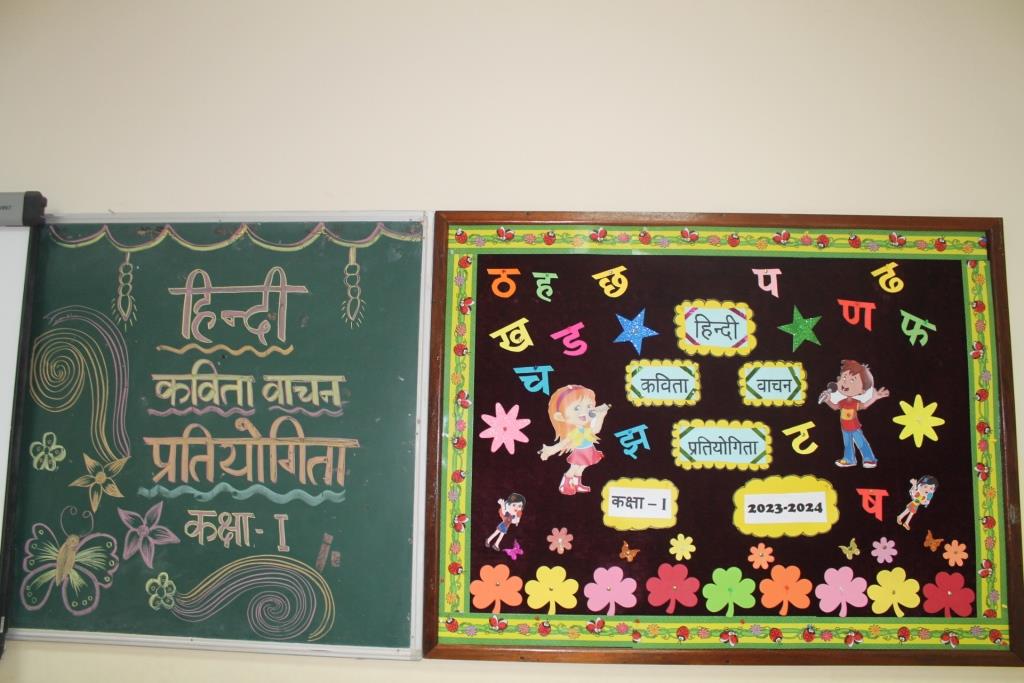 हिन्दी
कविता वाचन
प्रतियोगिता
कक्षा - I
ठ ह छ प
ख ड
च
झ
ण फ
ष
हिन्दी
कविता वाचन
प्रतियोगिता
कक्षा – I
2023-2024